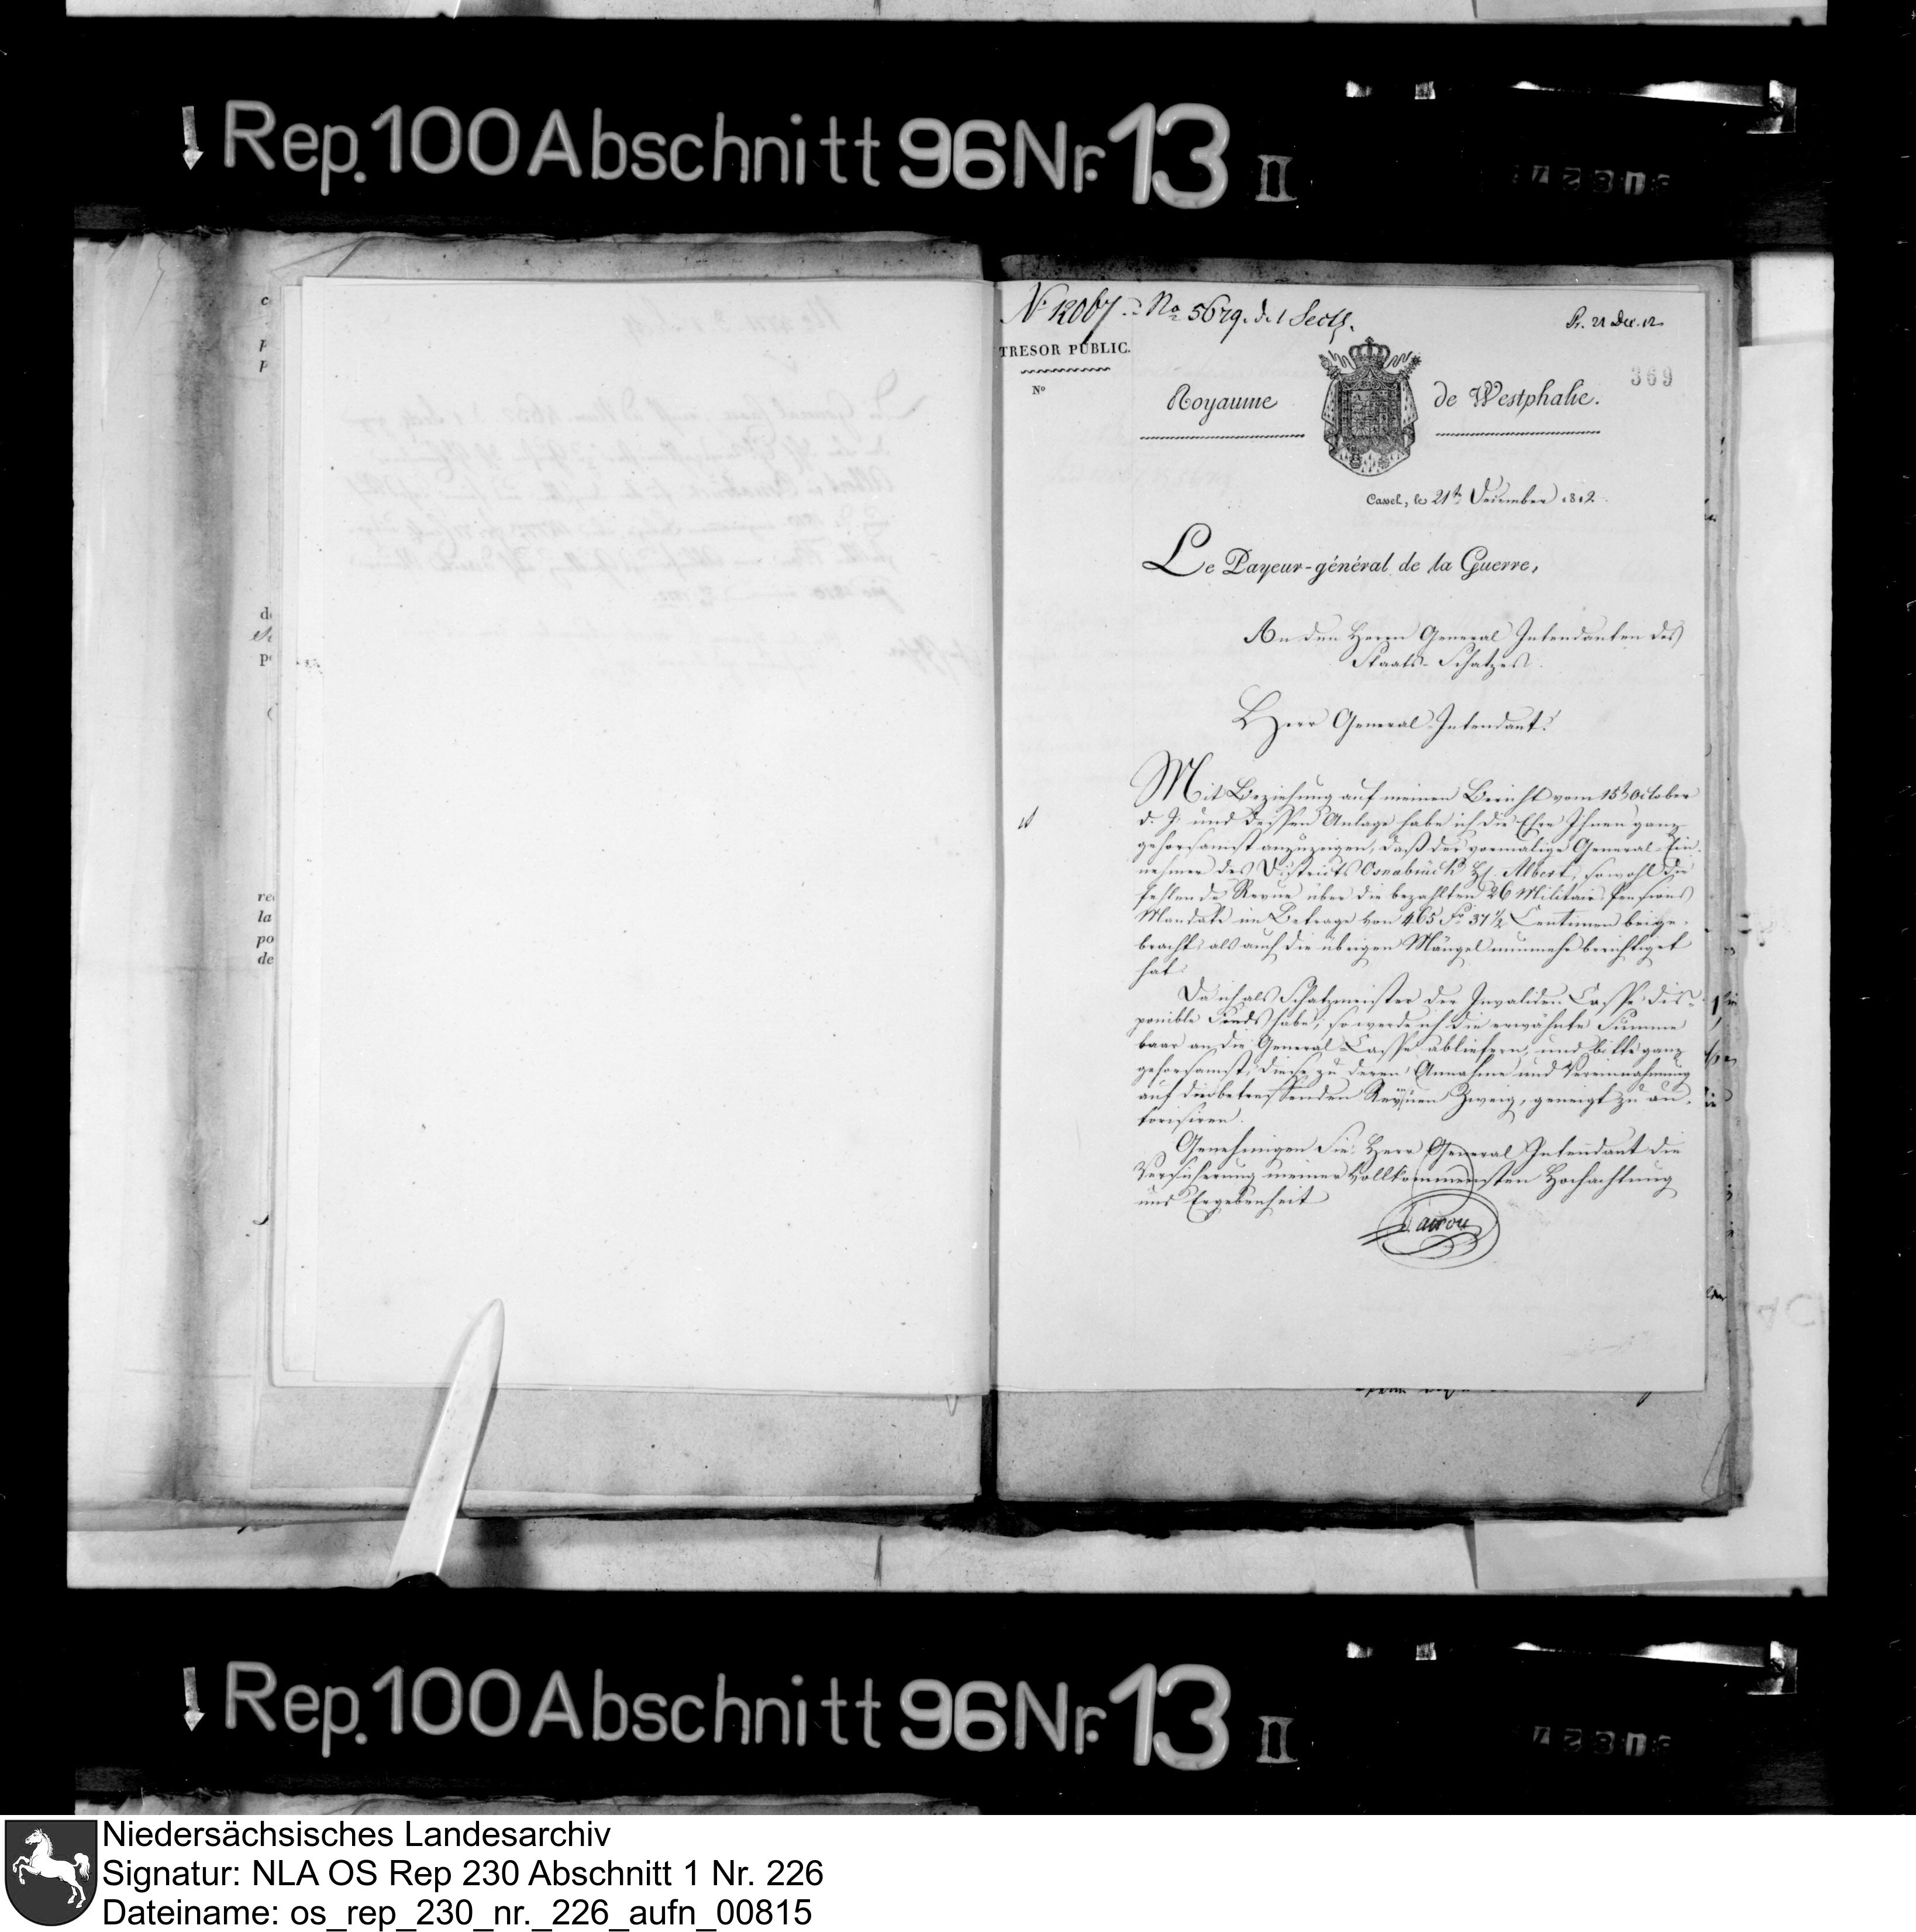 Rep. 100 Abschnitt 96 Nr. 13 II
N. 12067. No 5679. d. 1 Sect.
Pr. 21 Dec. 12
TRESOR PUBLIC.
No
369
Royaume de Westphalie.
Cassel, le 21ten December 1812.
Le Payeur-général de la Guerre,
An den Herrn General Intendanten des
Staats-Schatzes.
Herr General-Intendant!
Mit Beziehung auf meinen Bericht vom 15t October
d. J. und dessen Anlage habe ich die Ehre Ihnen ganz
gehorsamst anzuzeigen, daß der vormalige General-Ein-
nehmer des Districts Osnabrück H. Albert, sowohl die
fehlende Revue über die bezahlten 26 Militair-Pensions
Mandate im Betrage von 465 Fr 37 1/2 Centimen beige-
bracht, als auch die übrigen Mängel nunmehr berichtiget
hat.
Da ich als Schatzmeister der Invaliden Casse dis-
ponible Fonds habe, so werde ich die erwähnte Summe
baar an die General-Casse abliefern, und bitte ganz
gehorsamst, diese zu deren Annahme und Vereinnahmung
auf die betreffenden Zweig, geneigt zu au-
torisiren.
Genehmigen Sie, Herr General Intendant die
Versicherung meiner vollkommensten Hochachtung
und Ergebenheit
Rep. 100 Abschnitt 96 Nr. 13 II
Niedersächsisches Landesarchiv
Signatur: NLA OS Rep 230 Abschnitt 1 Nr. 226
Dateiname: os_rep_230_nr._226_aufn_00815